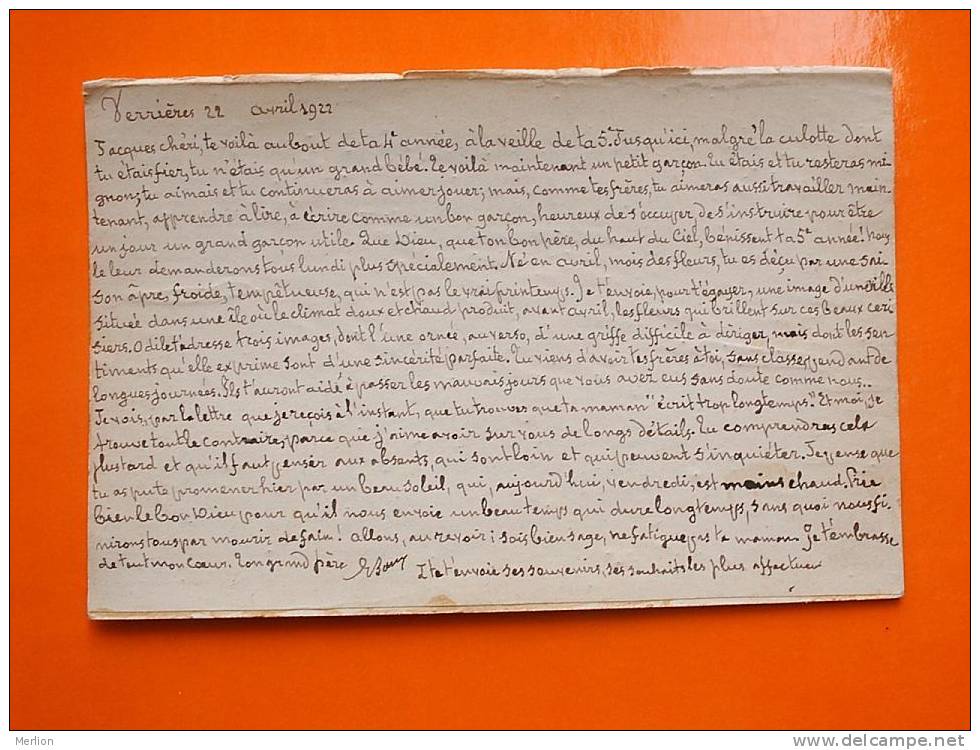 Verrières 22 avril 1922
Jacques chéri, te voilà au bout de ta 4e année, à la veille de ta 5e. Jusqu'ici, malgré la culotte dont
tu étais fier, tu n'étais qu'un grand bébé. Te voilà maintenant un petit garçon. Tu étais et tu resteras mi-
gnon; tu aimais et tu continueras à aimer jouer; mais, comme tes frères, tu aimeras aussi travailler main-
tenant, apprendre à lire, à écrire comme un bon garçon, heureux de s'occuper, de s'instruire pour être
un jour un grand garçon utile. Que Dieu, que ton bon père, du haut du Ciel, bénissent ta 5e année! Nous
le leur demanderons tous lundi plus spécialement. Né en avril, mois des fleurs, tu es déçu par une sai-
son âpre, froide, tempêtueuse, qui n'est pas le vrai printemps. Je t'envoie, pour t'égayer, une image d'une ville
située dans une île où le climat doux et chaud produit, avant avril, les fleurs qui brillent sur ces beaux ceri-
siers. Odile t'adresse trois images, dont l'une ornée, au verso, d'une griffe difficile à diriger, mais dont les sen-
timents qu'elle exprime sont d'une sincérité parfaite. Tu viens d'avoir tes frères à toi, sans classe, pendant de
longues journées. Ils t'auront aidé à passer les mauvais jours que vous avez eus sans doute comme nous..
Je vois, par la lettre que je reçois à l'instant, que tu trouves que ta maman "écrit trop longtemps". Et moi, je
trouve tout le contraire, parce que j'aime avoir sur vous de longs détails. Tu comprendras cela
plus tard et qu'il faut penser aux absents, qui sont loin et qui peuvent s'inquiéter. Je pense que
tu as pu te promener hier par un beau soleil, qui, aujourd'hui, vendredi, est moins chaud. Prie
bien le bon Dieu pour qu'il nous envoie un beau temps qui dure longtemps, sans quoi nous fi-
nirons tous par mourir de faim! Allons, au revoir; sois bien sage, ne fatigue pas ta maman. Je t'embrasse
de tout mon cœur. Ton grand père
t'envoie ses souvenirs, ses souhaits les plus affectueux
Merlion
www.delcampe.net